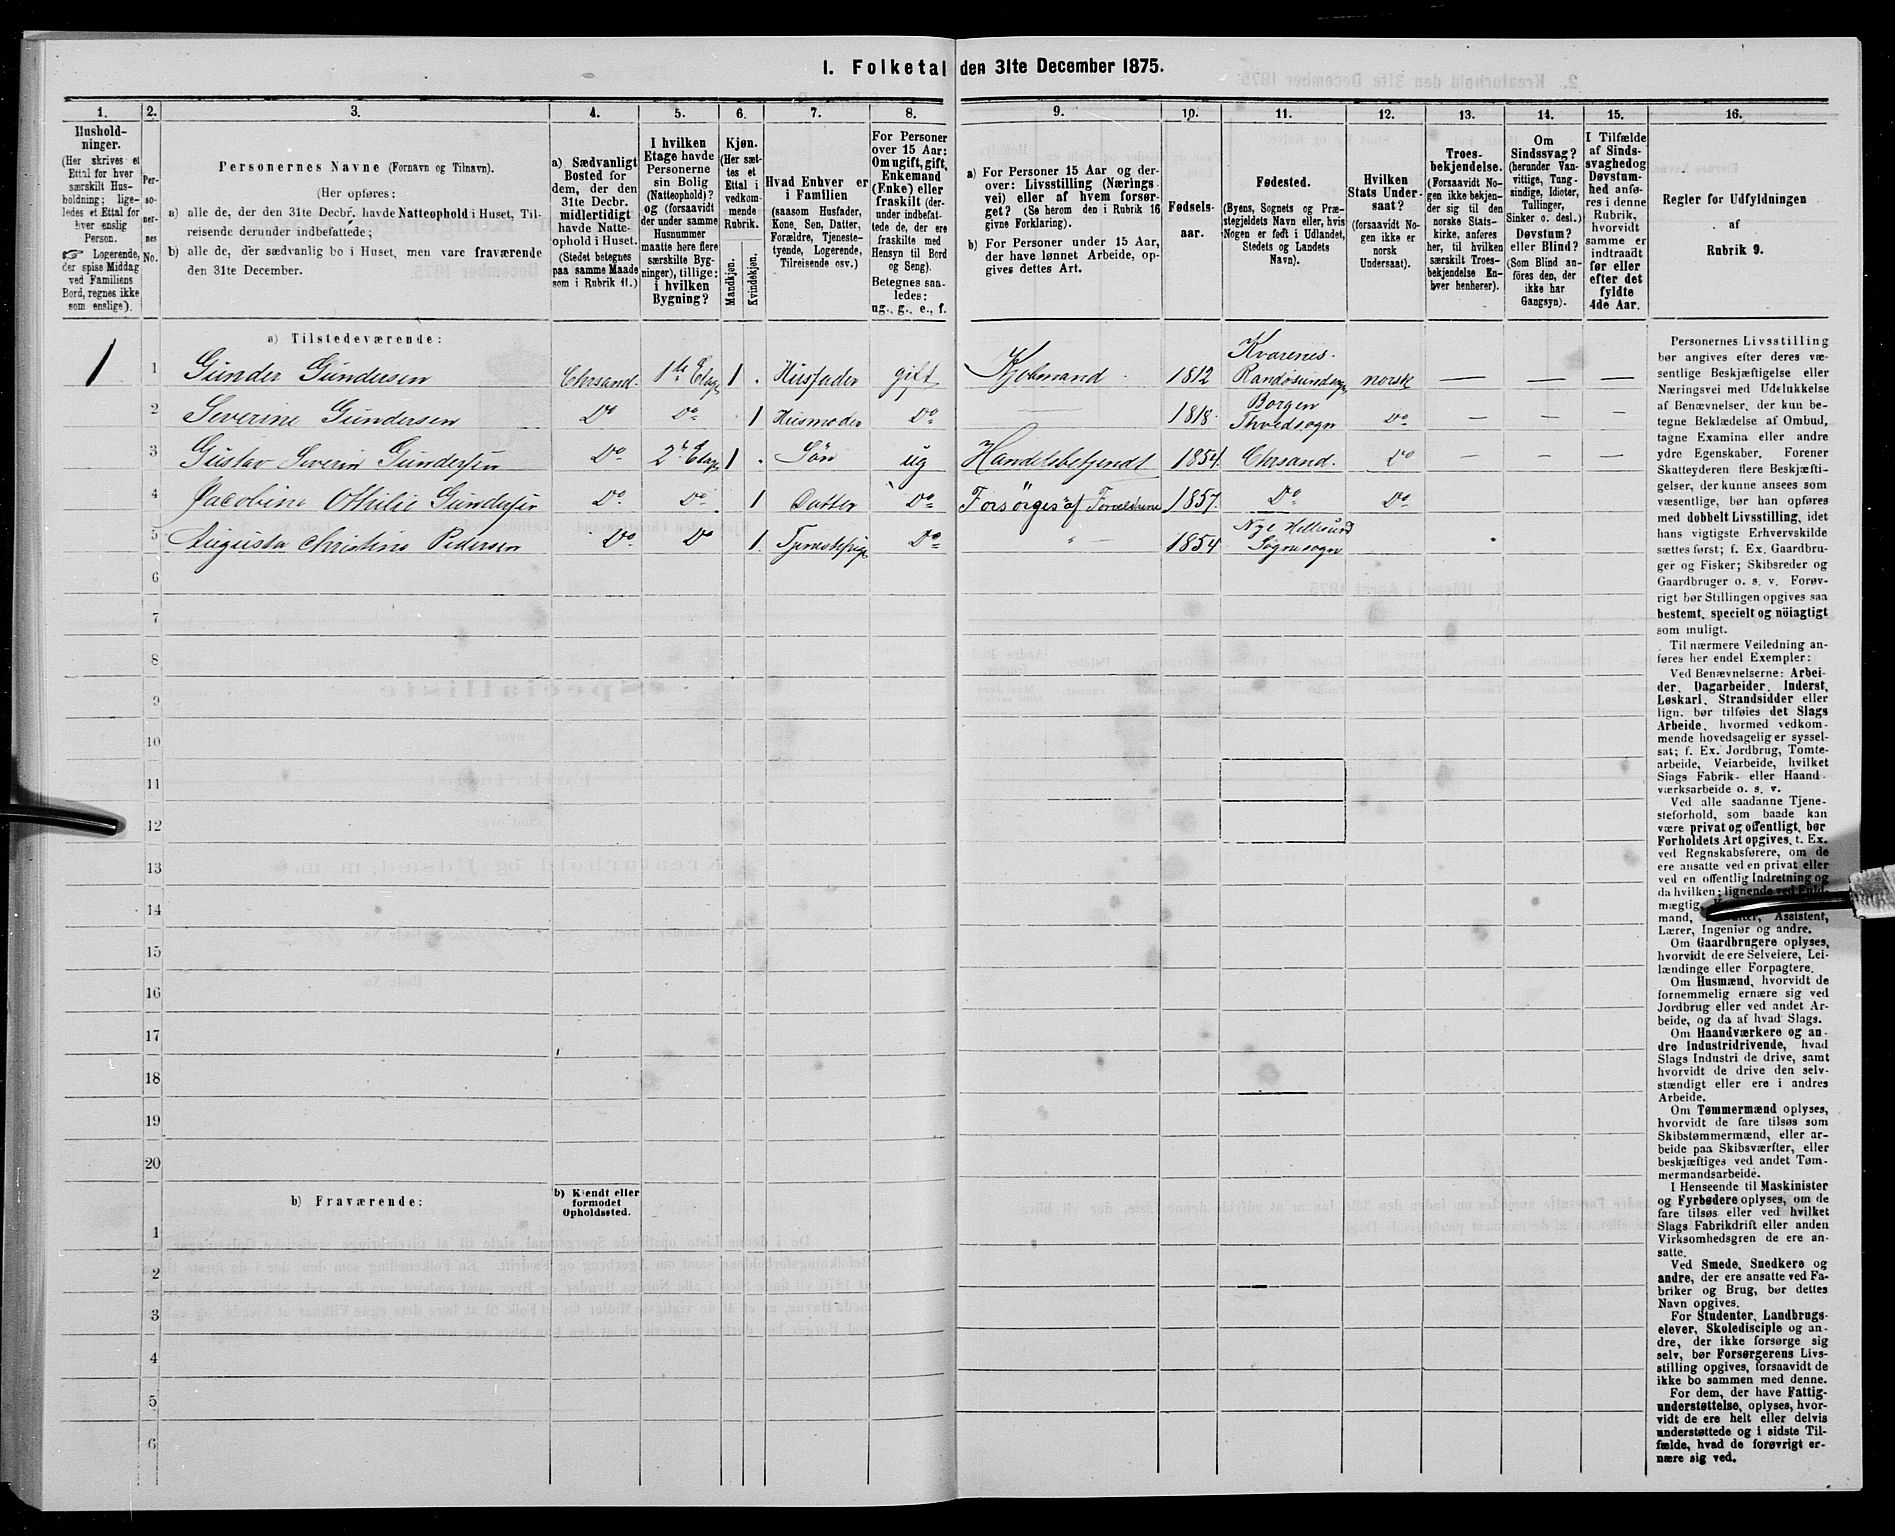 I. Folketal den 31te December 1875.
1. 2. 3. 4. 5. 6. 7. 8. 9. 10. 11. 12. 13. 14. 15. 16.
Hushold-
ninger.
(Her skrives et
Ettal for hver
særskilt Hus-
holdning; lige-
ledes et Ettal for
hver enslig
Person.
☞ Logerende,
der spise Middag
ved Familiens
Bord, regnes ikke
som enslige).
Per-
so-
ner-
nes
No.
Personernes Navne (Fornavn og Tilnavn).
(Her opføres:
a) alle de, der den 31te Decbr. havde Natteophold i Huset, Til-
reisende derunder indbefattede;
b) alle de, der sædvanlig bo i Huset, men vare fraværende
den 31te December.
a) Sædvanligt
Bosted for
dem, der den
31te Decbr.
midlertidigt
havde Natte-
ophold i Huset.
(Stedet betegnes
paa samme Maade
som i Rubrik 11.)
I hvilken
Etage havde
Personerne
sin Bolig
(Natteophold)?
og (forsaavidt
der under samme
Husnummer
maatte høre flere
særskilte Byg-
ninger), tillige:
i hvilken
Bygning?
Kjøn.
(Her sæt-
tes et
Ettal i
vedkom-
mende
Rubrik.
Mandkjøn.
Kvindekjøn.
Hvad Enhver er
i Familien
(saasom Husfader,
Kone, Søn, Datter,
Forældre, Tjeneste-
tyende, Logerende,
Tilreisende osv.)
For Personer
over 15 Aar:
Om ugift, gift,
Enkemand
(Enke) eller
fraskilt (der-
under indbefat-
tede de, der ere
fraskilte med
Hensyn til Bord
og Seng).
Betegnes saa-
ledes:
ug., g., e., f.
a) For Personer 15 Aar og der-
over: Livsstilling (Nærings
vei) eller af hvem forsør-
get? (Se herom den i Rubrik 16
givne Forklaring).
b) For Personer under 15 Aar,
der have lønnet Arbeide, op-
gives dettes Art.
Fødsels-
aar.
Fødested.
(Byens, Sognets og Præ-
stegjeldets Navn eller, hvis
Nogen er født i Udlandet,
Stedets og Landets
Navn).
Hvilken
Stats Under-
saat?
(forsaavidt No-
gen ikke er
norsk
Undersaat).
Troes-
bekjendelse.
(Forsaavidt No-
gen ikke bekjen-
der sig til den
norske Stats-
kirke, anføres
her, til hvilken
særskilt Troes-
bekjendelse En-
hver henhører).
Om
Sindssvag?
(herunder Van-
vittige, Tung-
sindige, Idioter,
Tullinger,
Sinker o. desl.)
Døvstum?
eller Blind?
(Som Blind an-
føres den, der
ikke har
Gangsyn).
I Tilfælde
af Sinds-
svaghed og
Døvstum-
hed anfø-
res i denne
Rubrik,
hvorvidt
samme er
indtraadt
før eller
efter det
fyldte
4de Aar.
Regler for Udfyldningen
af
Rubrik 9.
a) Tilstedeværende:
1 1 Gunder Gundersen Chrsand. 1te Etage 1 . Husfader gift Kjøbmand 1812 Kvarenes. Randøsund norsk — — —
2 Severine Gundersen Do Do 1 Husmoder Do — 1818. Borgen Thvedsogn Do — — —
3 Gustav Severin Gundersen Do 2. Etage 1 . Søn ug Handelsbetjendt 1854. Chrsand. Do
4 Jacobine Othilie Gundersen Do Do 1 Datter Do Forsørges af Forældrene 1857. Do Do
5 Augusta Christine Pedersen Do Do 1 Do " 1854 Nye Hellesund Søgnesogn
6
7
8
9
10
11
12
13
14
15
16
17
18
19
20
b) Fraværende:
b) Kjendt eller
formodet
Opholdssted.
1
2
3
4
5
6
Personernes Livsstilling
bør angives efter deres væ-
sentlige Beskjæftigelse eller
Næringsvei med Udelukkelse
af Benævnelser, der kun be-
tegne Beklædelse af Ombud,
tagne Examina eller andre
ydre Egenskaber. Forener
Skatteyderen flere Beskjæfti-
gelser, der kunne ansees som
væsentlige, bør han opføres
med dobbelt Livsstilling, idet
hans vigtigste Erhvervskilde
sættes først; f. Ex. Gaardbru-
ger og Fisker; Skibsreder og
Gaardbruger o. s. v. Forøv-
rigt bør Stillingen opgives saa
bestemt, specielt og nöiagtigt
som muligt.
Til nærmere Veiledning an-
føres her endel Exempler:
Ved Benævnelserne: Arbei-
der, Dagarbeider, Inderst,
Løskarl, Strandsidder eller
lign. bør tilføies det Slags
Arbeide, hvormed vedkom-
mende hovedsagelig er syssel-
sat; f. Ex. Jordbrug, Tomte-
arbeide, Veiarbeide, hvilket
Slags Fabrik- eller Haand-
værksarbeide o. s. v.
Ved alle saadanne Tjene-
steforhold, som baade kan
være privat og offentligt, bør
Forholdets Art opgives, t. Ex.
ved Regnskabsførere, om de
ere ansatte ved en privat eller
ved en offentlig Indretning og
da hvilken; lignende ved Fuld-
mægtig,
mand, Assistent,
Lærer, Ingeniør og andre.
Om Gaardbrugere oplyses,
hvorvidt de ere Selveiere, Lei-
lændinge eller Forpagtere.
Om Husmænd, hvorvidt de
fornemmelig ernære sig ved
Jordbrug eller ved andet Ar-
beide, og da af hvad Slags.
Om Haandværkere og an-
dre Industridrivende, hvad
Slags Industri de drive, samt
hvorvidt de drive den selv-
stændigt eller ere i andres
Arbeide.
Om Tømmermænd oplyses,
hvorvidt de fare tilsøs som
Skibstømmermænd, eller ar-
beide paa Skibsværfter, eller
beskjæftiges ved andet Tøm-
mermandsarbeide.
I Henseende til Maskinister
og Fyrbødere oplyses, om de
fare tilsøs eller ved hvilket
Slags Fabrikdrift eller anden
Virksomhedsgren de ere an-
satte.
Ved Smede, Snedkere og
andre, der ere ansatte ved Fa-
briker og Brug, bør dettes
Navn opgives.
For Studenter, Landbrugs-
elever, Skoledisciple og an-
dre, der ikke forsørge sig
selv, bør Forsørgerens Livs-
stilling opgives, forsaavidt de
ikke bo sammen med denne.
For dem, der have Fattig-
understøttelse, oplyses, hvor-
vidt de ere helt eller delvis
understøttede og i sidste Til-
fælde, hvad de forøvrigt er-
nære sig ved.